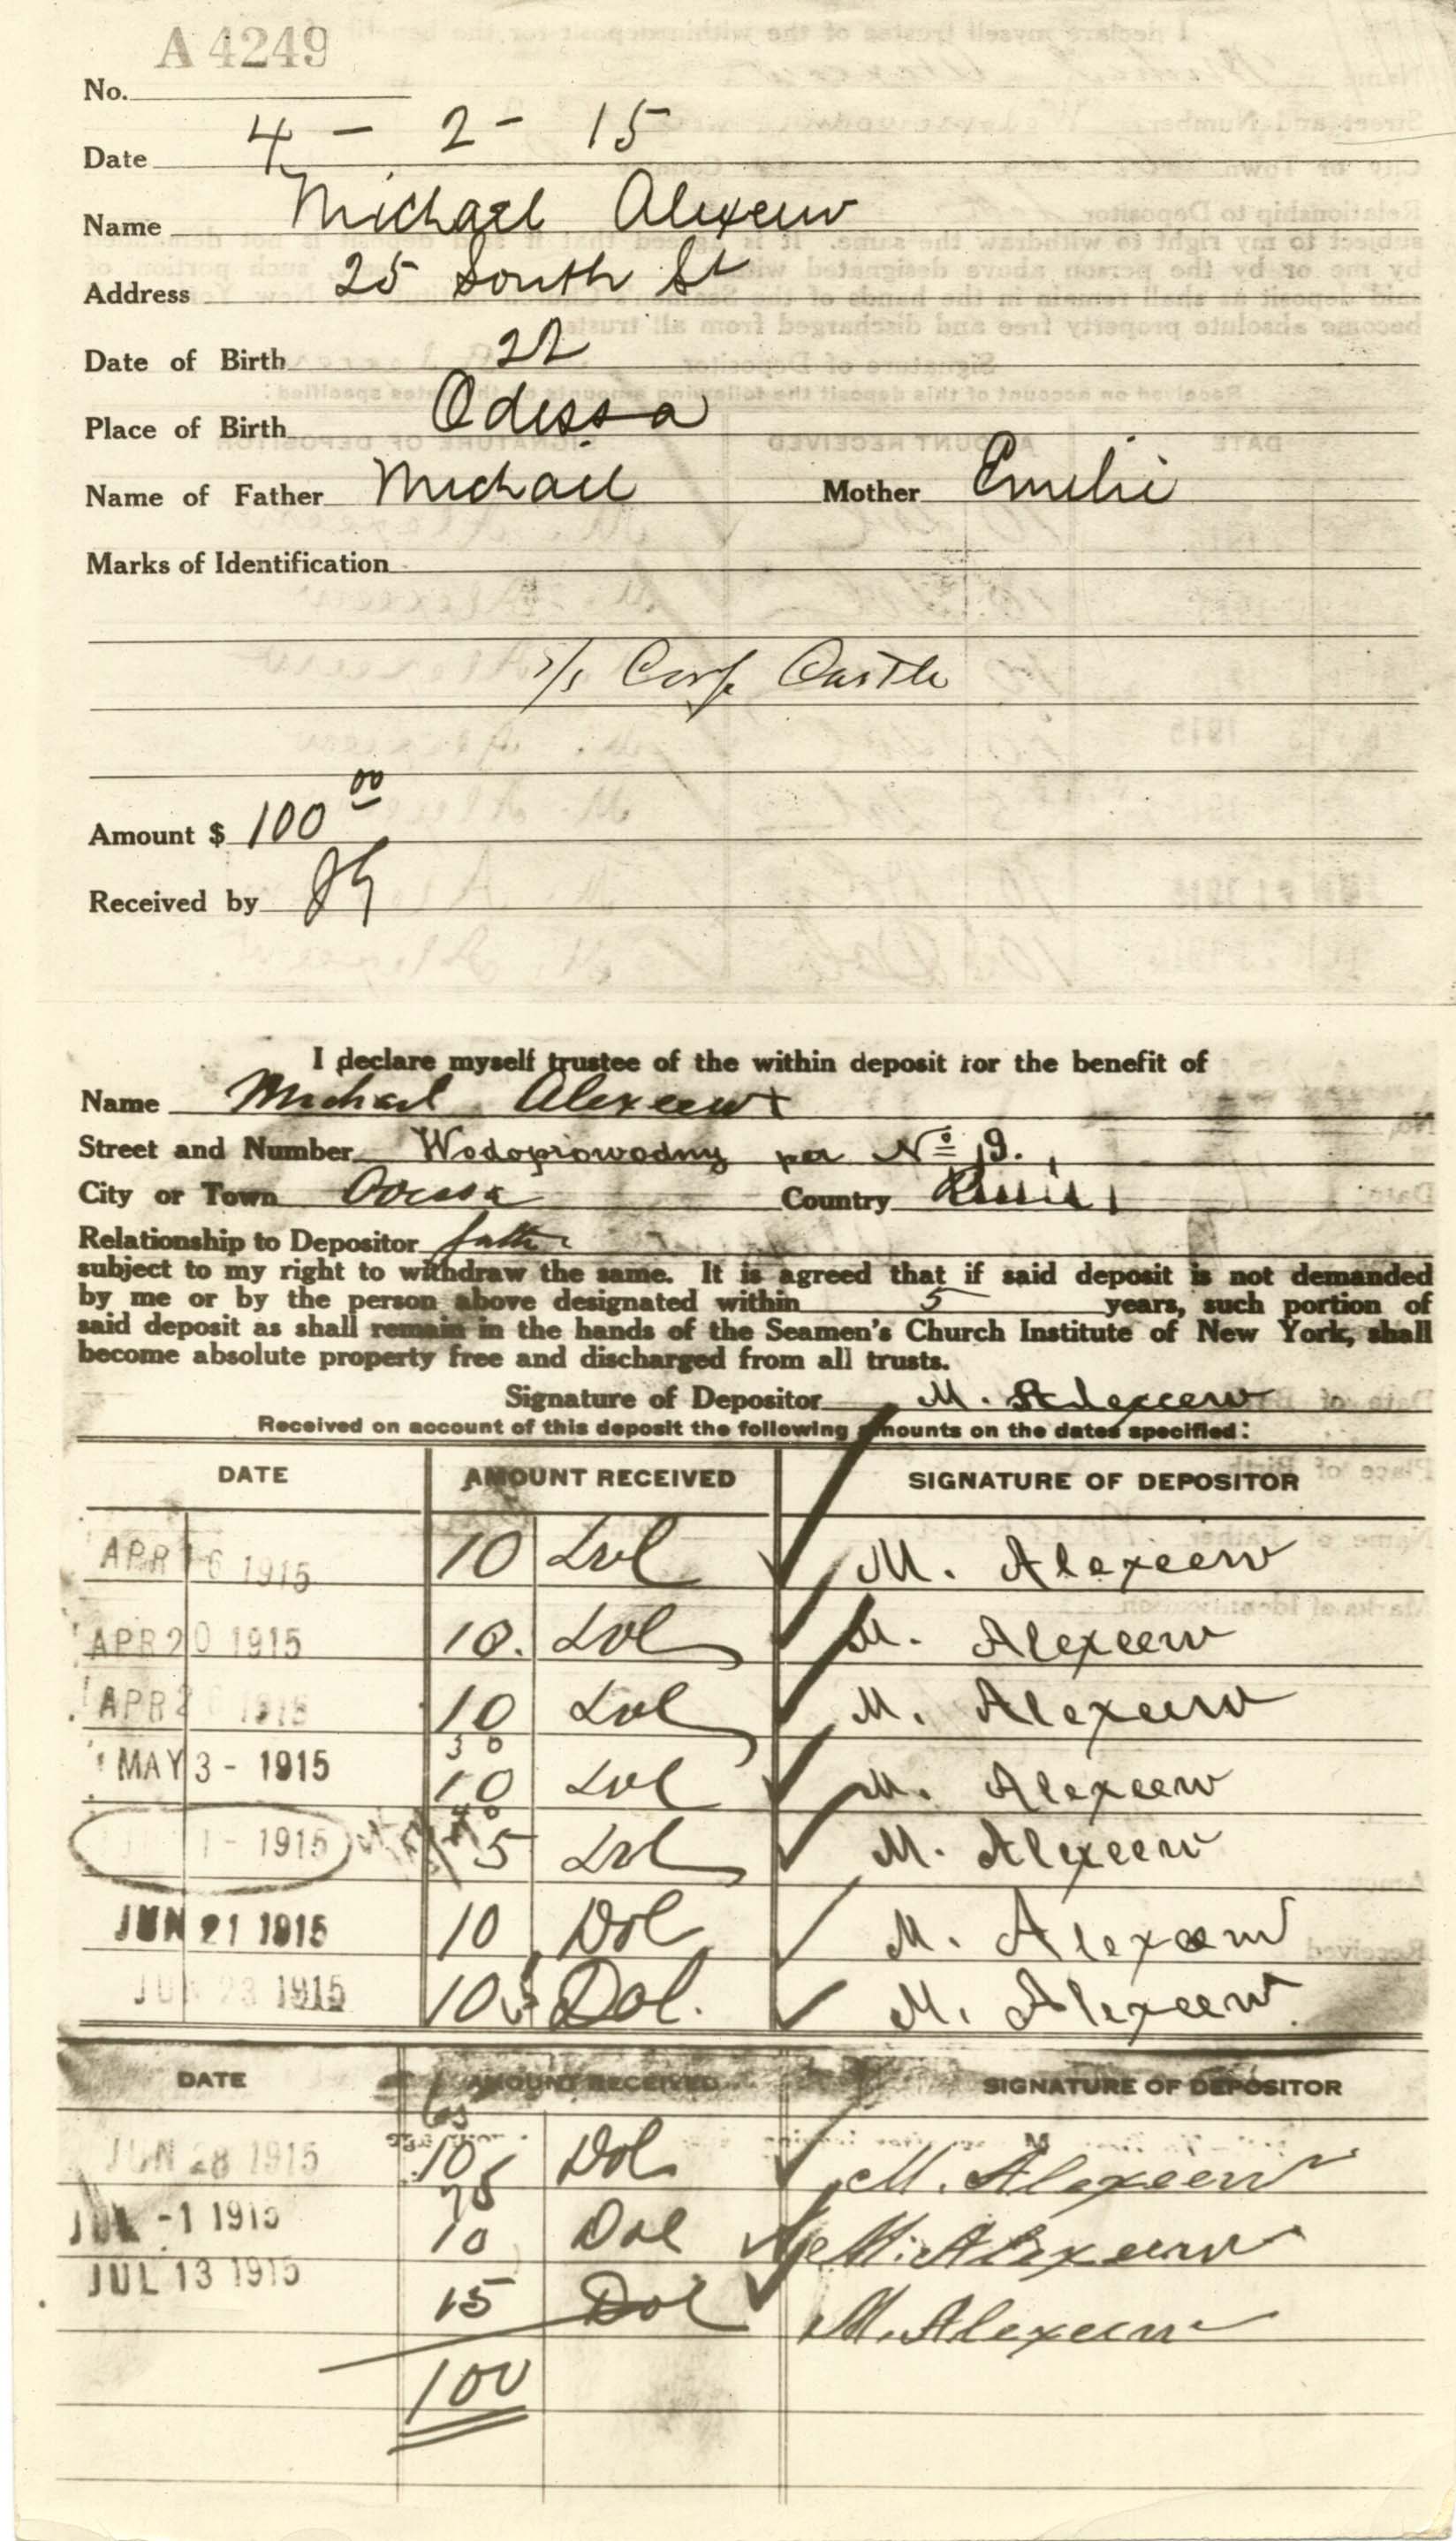 A 4249
No.
Date 4 - 2 - 15
Name Michael Alexeew
Address 25 South St
Date of Birth 22
Place of Birth Odessa
Name of Father Michael Mother Emelie
Marks of Identification
s/s Corfe Castle
Amount $ 100 00
Received by
I declare myself trustee of the within deposit for the benefit of
Name Michael Alexeew
Street and Number Wodoprowodny per No 19.
City or Town Odessa Country Russia
Relationship to Depositor father
subject to my right to withdraw the same. It is agreed that if said deposit is not demanded
by me or by the person above designated within 5 years, such portion of
said deposit as shall remain in the hands of the Seamen's Church Institute of New York, shall
become absolute property free and discharged from all trusts.
Signature of Depositor M. Alexeew
Received on account of this deposit the following amounts on the dates specified:
DATE AMOUNT RECEIVED SIGNATURE OF DEPOSITOR
APR 16 1915 10 Dol M. Alexeew
APR 20 1915 10. Dol M. Alexeew
APR 26 1915 10 Dol M. Alexeew
30
MAY 3 - 1915 10 Dol M. Alexeew
40
1 - 1915 5 Dol M. Alexeew
JUN 21 1915 10 Dol M. Alexeew
JUN 23 1915 10 Dol. M. Alexeew
DATE AMOUNT RECEIVED SIGNATURE OF DEPOSITOR
65
JUN 28 1915 10 Dol M. Alexeew
75
JUL -1 1915 10 Dol M. Alexeew
JUL 13 1915 15 Dol M. Alexeew
100